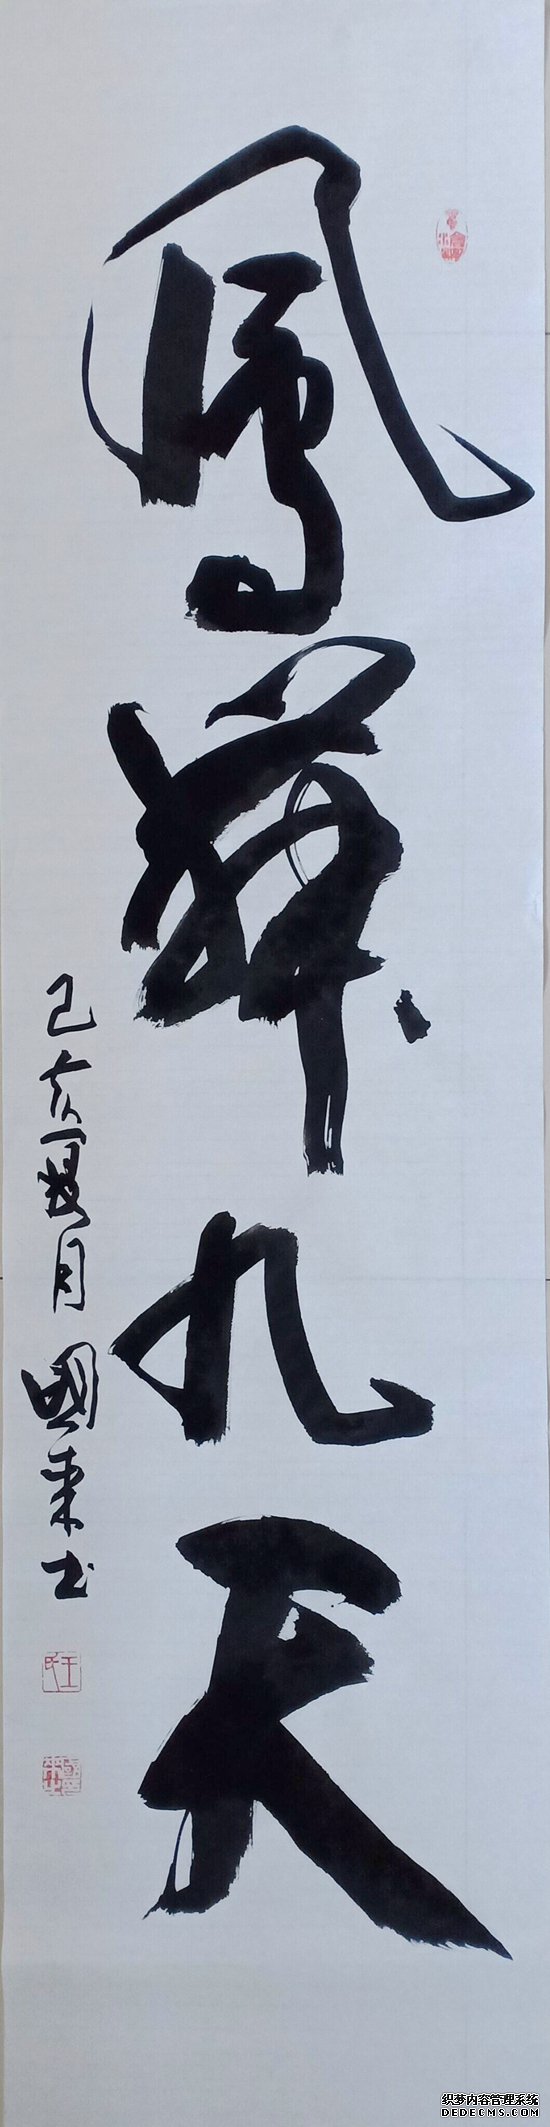 鳳舞九天
己亥夏月 國東书
王氏
织梦内容管理系统
DEDECMS.COM